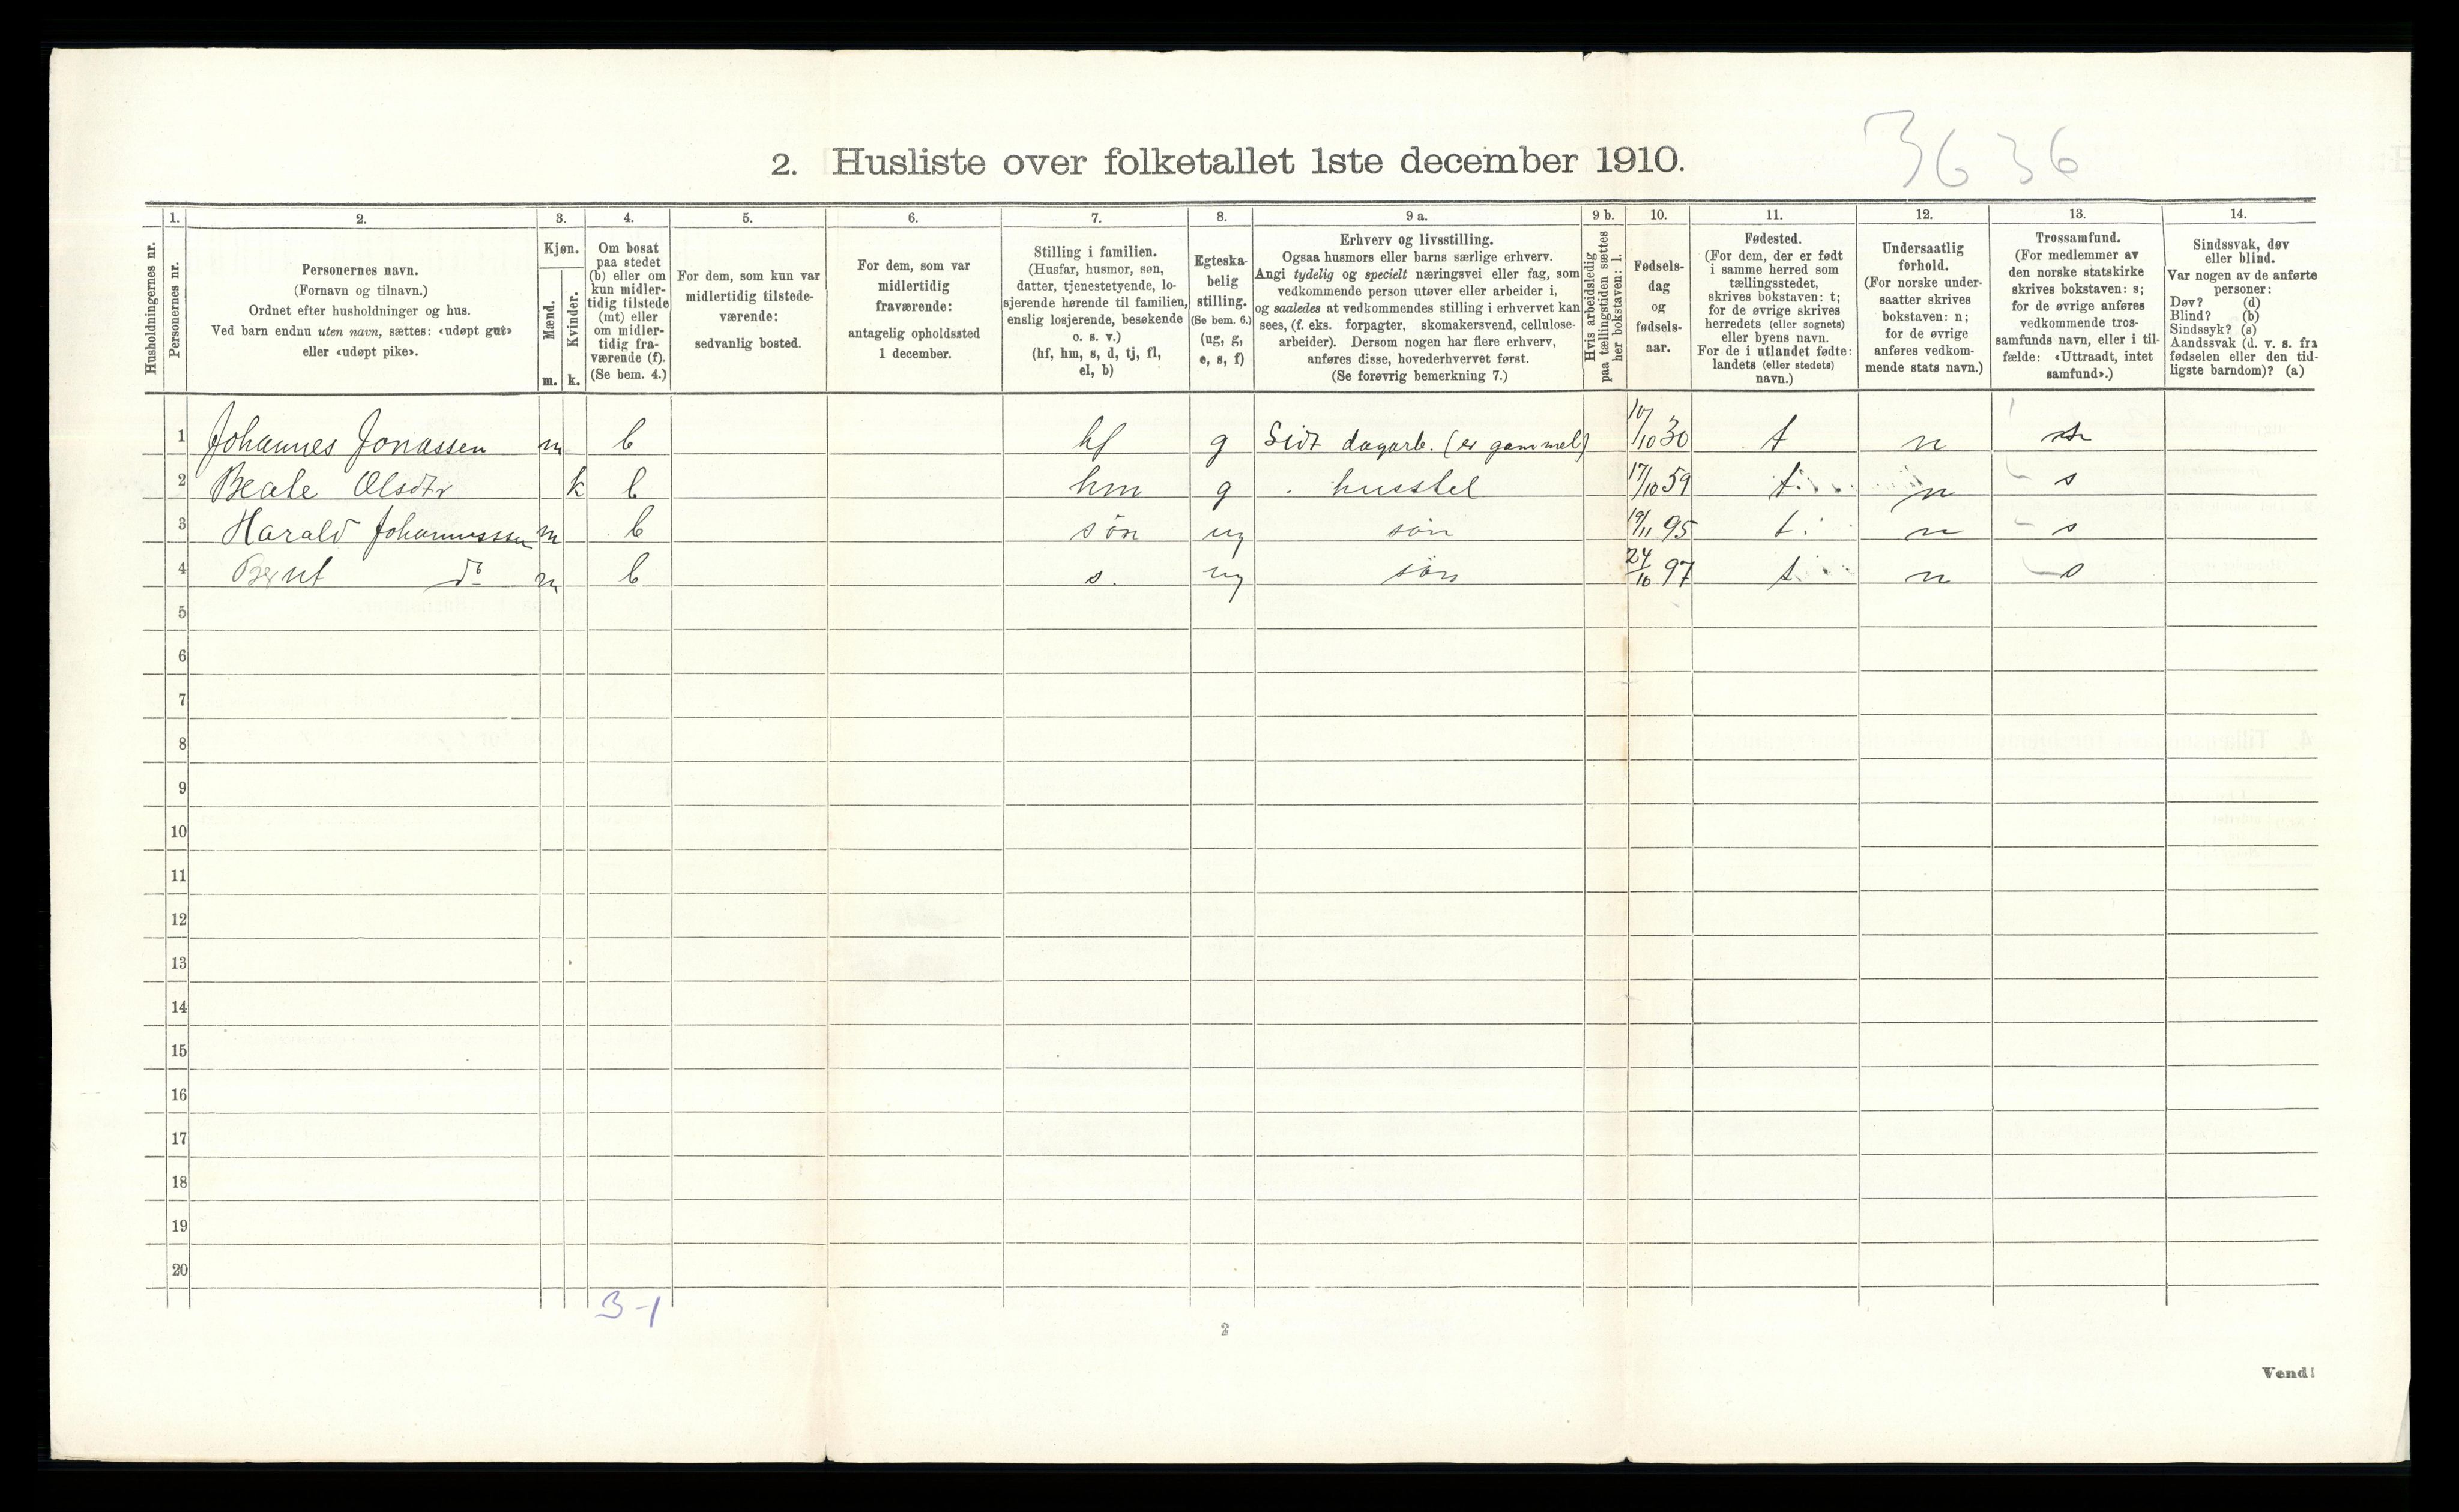 3636
2. Husliste over folketallet 1ste december 1910.
Husholdningernes nr.
1.
Personernes nr.
2.
Personernes navn.
(Fornavn og tilnavn.)
Ordnet efter husholdninger og hus.
Ved barn endnu uten navn, sættes: «udøpt gut»
eller «udøpt pike».
3.
Kjøn.
Mænd.
Kvinder.
m. k.
4.
Om bosat
paa stedet
(b) eller om
kun midler-
tidig tilstede
(mt) eller
om midler-
tidig fra-
værende (f).
(Se bem. 4.)
5.
For dem, som kun var
midlertidig tilstede-
værende:
sedvanlig bosted.
6.
For dem, som var
midlertidig
fraværende:
antagelig opholdssted
1 december.
7.
Stilling i familien.
(Husfar, husmor, søn,
datter, tjenestetyende, lo-
sjerende hørende til familien,
enslig losjerende, besøkende
o. s. v.)
(hf, hm, s, d, tj, fl,
el, b)
8.
Egteska-
belig
stilling.
(Se bem. 6.)
(ug, g,
e, s, f)
9 a.
Erhverv og livsstilling.
Ogsaa husmors eller barns særlige erhverv.
Angi tydelig og specielt næringsvei eller fag, som
vedkommende person utøver eller arbeider i,
og saaledes at vedkommendes stilling i erhvervet kan
sees, (f. eks. forpagter, skomakersvend, cellulose-
arbeider). Dersom nogen har flere erhverv,
anføres disse, hovederhvervet først.
(Se forøvrig bemerkning 7.)
9 b.
Hvis arbeidsledig
paa tællingstiden sættes
her bokstaven: l.
10.
Fødsels-
dag
og
fødsels-
aar.
11.
Fødested.
(For dem, der er født
i samme herred som
tællingsstedet,
skrives bokstaven: t;
for de øvrige skrives
herredets (eller sognets)
eller byens navn.
For de i utlandet fødte:
landets (eller stedets)
navn.)
12.
Undersaatlig
forhold.
(For norske under-
saatter skrives
bokstaven: n;
for de øvrige
anføres vedkom-
mende stats navn.)
13.
Trossamfund.
(For medlemmer av
den norske statskirke
skrives bokstaven: s;
for de øvrige anføres
vedkommende tros-
samfunds navn, eller i til-
fælde: «Uttraadt, intet
samfund».)
14.
Sindssvak, døv
eller blind.
Var nogen av de anførte
personer:
Døv? (d)
Blind? (b)
Sindssyk? (s)
Aandssvak (d. v. s. fra
fødselen eller den tid-
ligste barndom)? (a)
1 Johannes Jonassen m b hf g dagarb. (er gammel) 10/10 30 t n
2 Beate Olsdtr k b hm g husstel 17/10 59 t n s
3 Harald Johannessen m b søn ug søn 19/11 95 t n s
4 Bernt do m b s. ug søn 24/10 97 t n s
5
6
7
8
9
10
11
12
13
14
15
16
17
18
19
20
3-1
2
Vend!